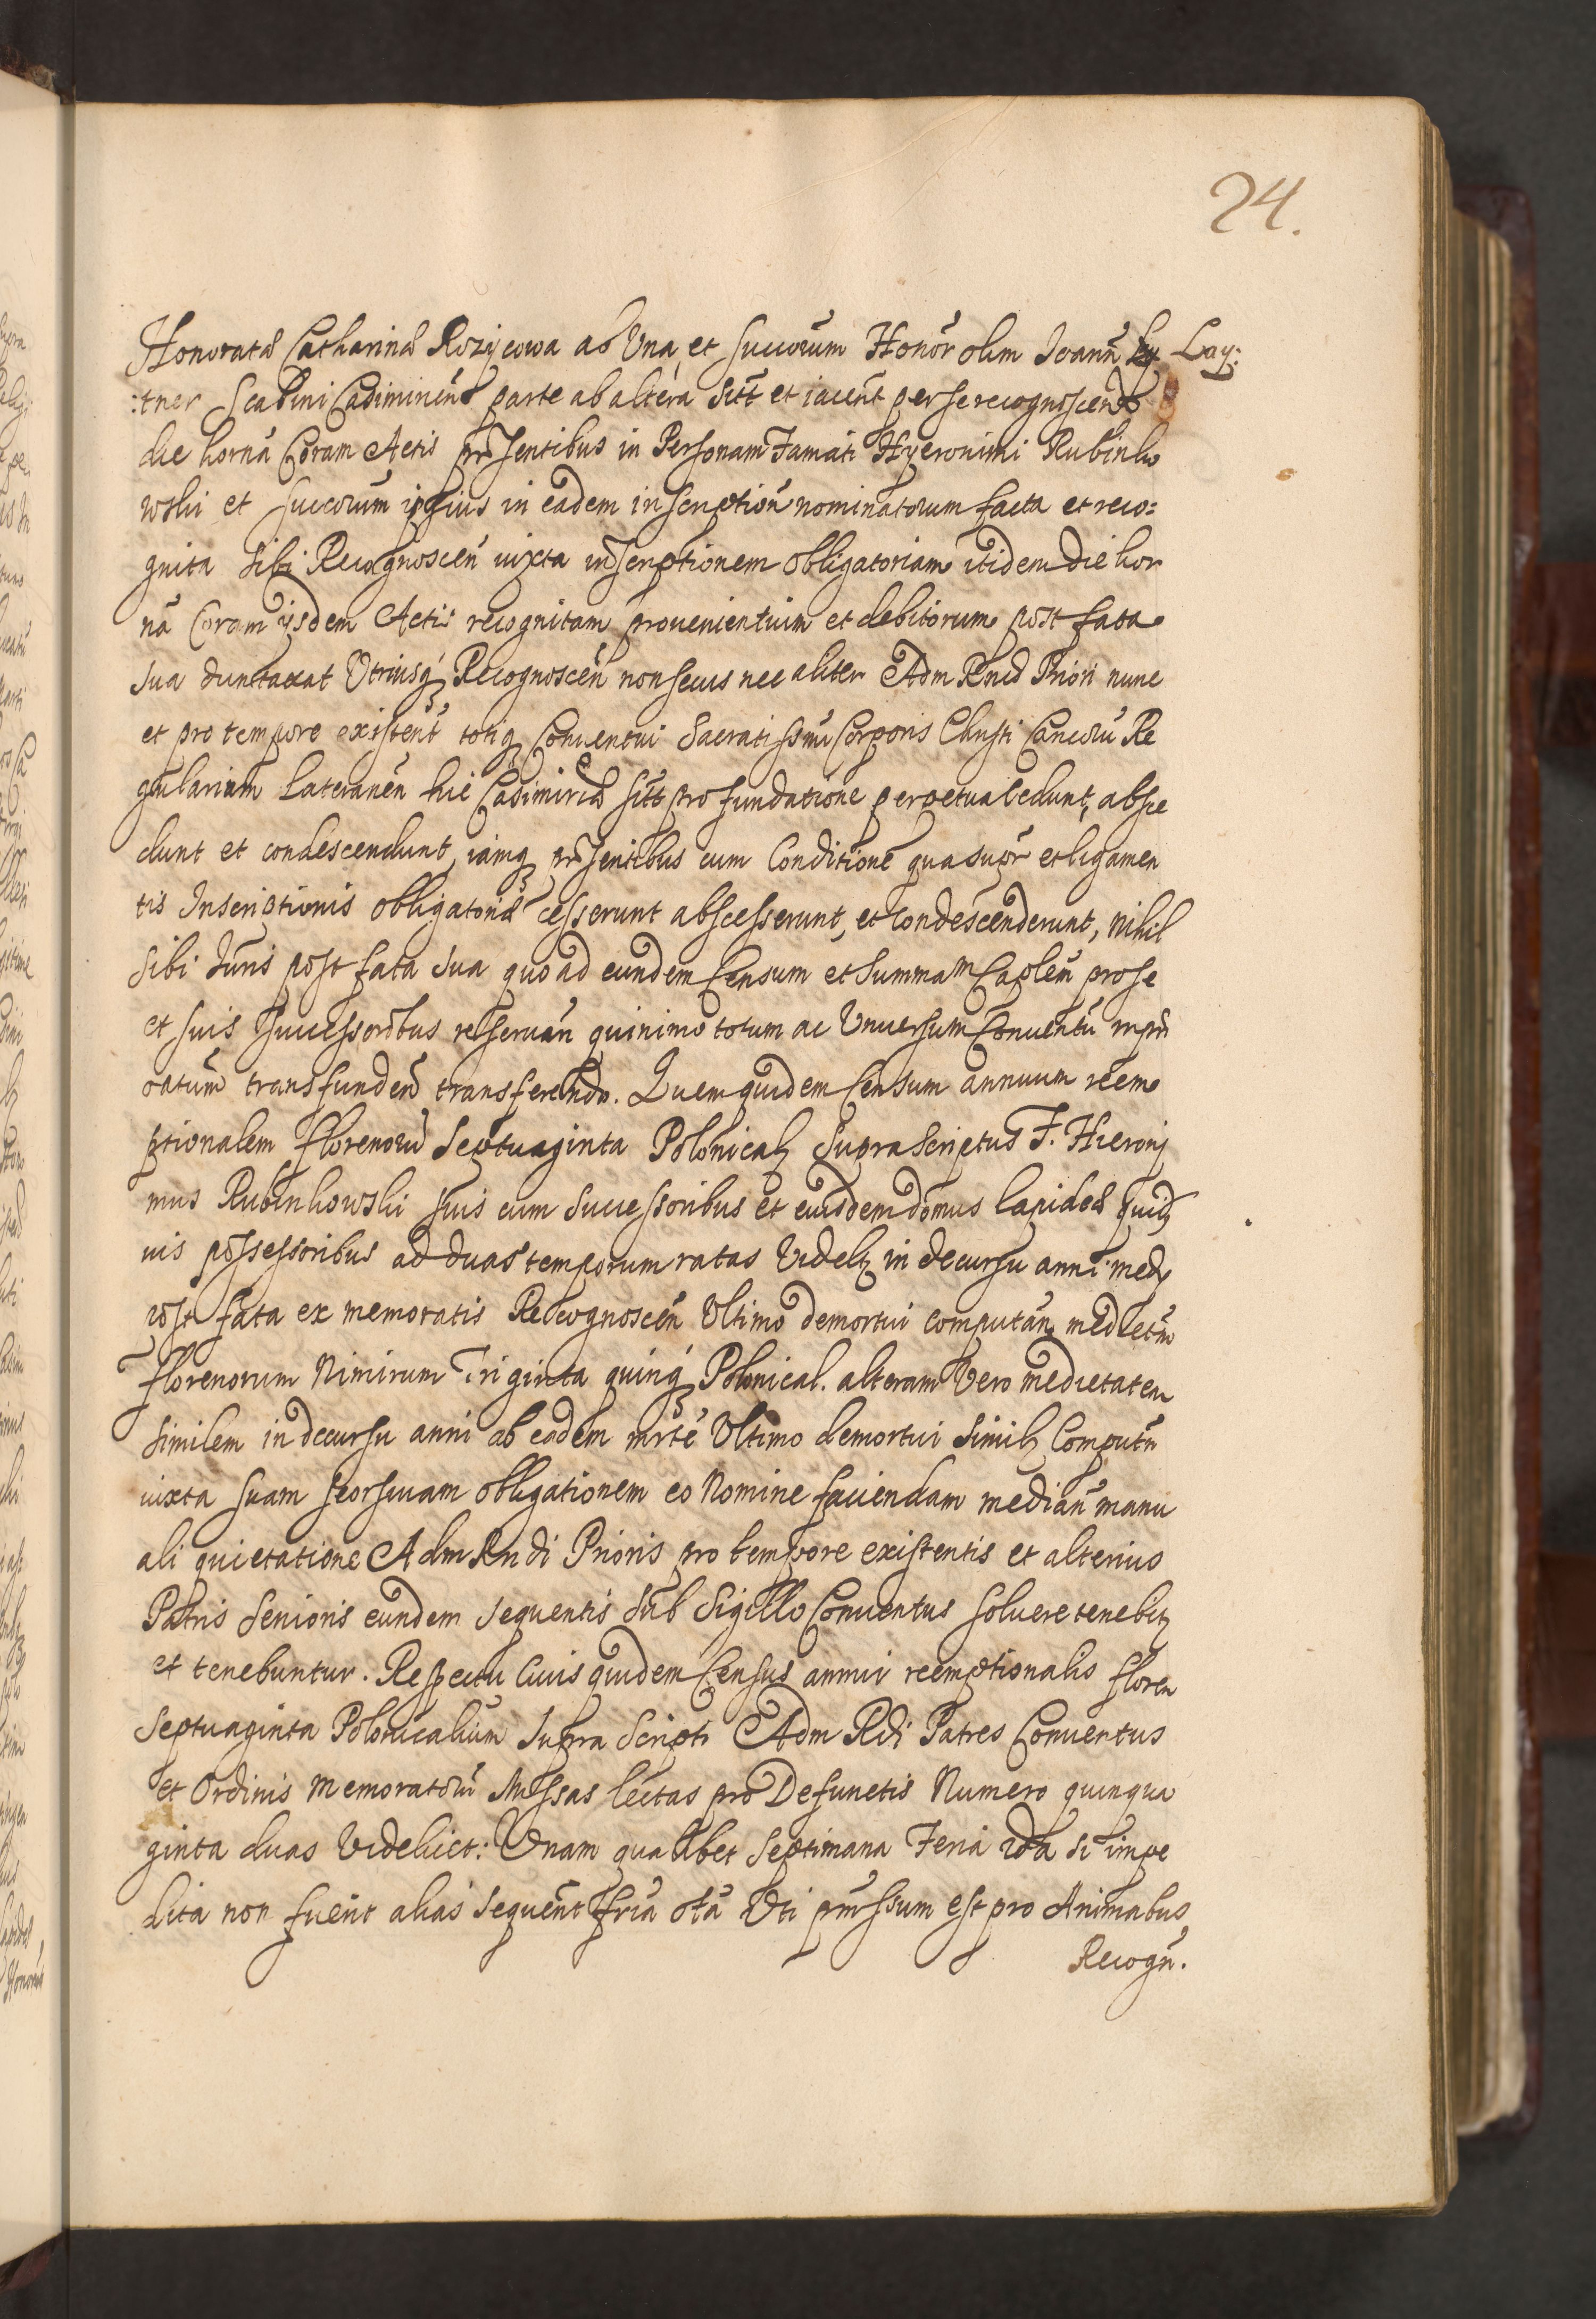 24.
Honorata Catharina Rozycowa ab Una et succorum Honor olim Joann Lay:
:tner Scabini Casiminien parte ab altera sitt et iacent per se recognoscendo
die horna Coram Actis prsentibus in Personam Famati Hyeronimi Rubinko
wski et succorum ipsius in eadem inscription nominatorum facta et reco:
gnita sibi Recognoscen iuxta inscriptionem obligatoriam itidem die hor
na Coram iisdem Actis recognitam prouenientium et debitorum post fata
sua duntaxat Utriusq Recognoscen non secus nec aliter Adm Rnd Priori nunc
et pro tempore existent totiq Conuentui Sacratissmi Corporis Christi Canonicoru Re
gularium Lateranen hic Casimiria sitt pro fundatione perpetua cedunt, absce
dunt et condescendunt, iamq prsentibus cum Conditione qua supr et ligamen
tis Inscriptionis obligatoria cesserunt abscesserunt, et Condescenderunt, nihil
sibi Juris post fata sua quo ad eundem Censum et Summam Caplem pro se
et suis Successoribus reseruan quinimo totum ac Uniuersum Conuentu
ratum transfunden transferendo. Quem quidem Censum annuum reem
ptionalem florenoru Septuaginta Polonical supra scriptus F. Hierony
mus Rubinkowski suis cum Successoribus et eiusdem domus lapidea quib
uis possessoribus ad duas temporum ratas Videlz in decursu anni medy
post fata ex memoratis Recognoscen Ultimo demortui computan medietatem
florenorum Nimirum Triginta quinq Polonical. alteram Vero medietatem
similem in decursu anni ab eadem mrte Ultimo demortui similz Computn
iuxta suam seorsiuam obligationem eo Nomine faciendam median manu
ali quietatione Adm Rndi Prioris pro tempore existentis et alterius
Patris Senioris eundem sequentis sub Sigillo Conuentus soluere tenebitz
et tenebuntur. Respectu Cuius quidem Census annui reemptionalis floren
Septuaginta Polonicalium supra scripti Adm Rdi Patres Conuentus
et Ordinis memoratoru Missas lectas pro Defunctis Numero quinqua
ginta duas Videlicet: Unam qualibet Septimana Feria 2da si impe
dita non fuerit alias sequent fria Uti prmssum est pro Animabus
Recogn.